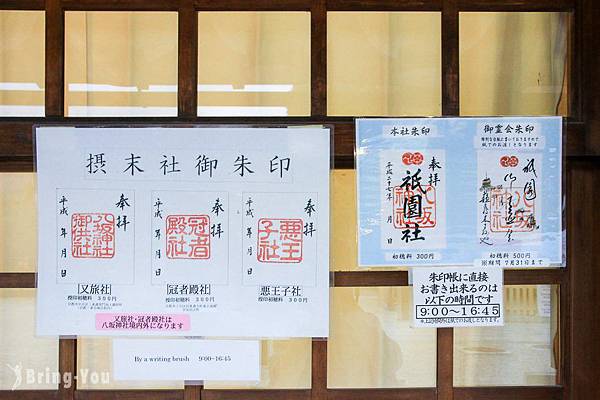 摂末社御朱印
奉拝
八坂神社
御供社
平成　年　月　日
[又旅社]
授印初穂料 300円
奉拝
冠者
殿社
平成　年　月　日
[冠者殿社]
授印初穂料 300円
奉拝
悪王
子社
平成　年　月　日
[悪王子社]
授印初穂料 300円
又旅社・冠者殿社は
八坂神社境内外になります
By a writing brush 9:00~16:45
本社朱印
奉拝
祇園社
平成二十七年　月　日
初穂料 300円
御霊会朱印
祇園
初穂料 500円
※期間 7月31日まで
朱印帳に直接
お書き出来るのは
以下の時間です
9:00~16:45
Bring-You